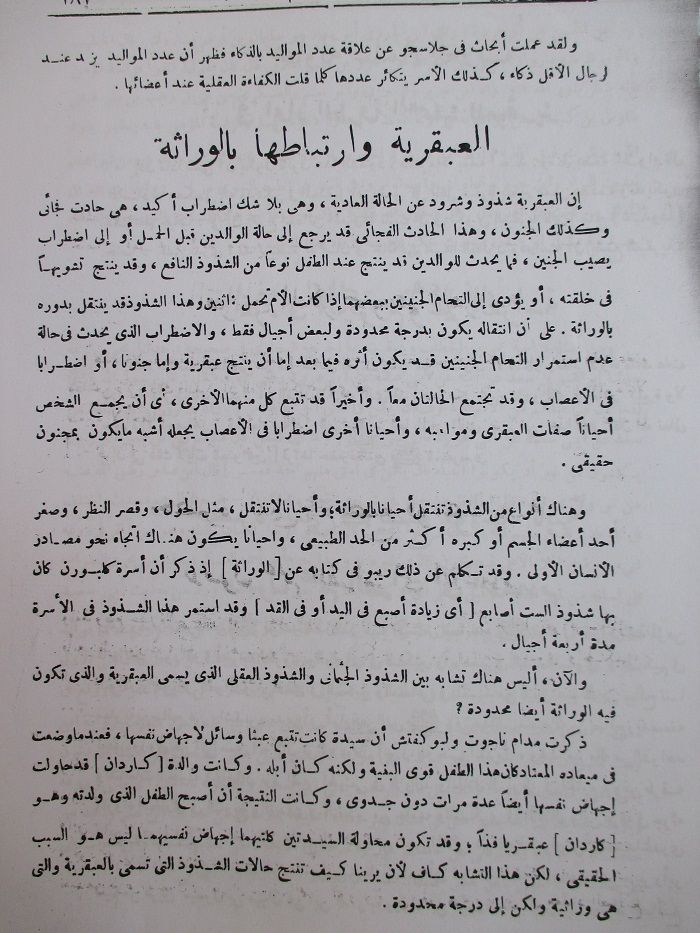 ولقد عملت أبحاث فى جلاسجو عن علاقة عدد المواليد بالذكاء فظهر أن عدد المواليد يزيد عند
الرجال الأقل ذكاء ، كذلك الأسر يتكاثر عددها كلما قلت الكفاءة العقلية عند أعضائها .
العبقرية وارتباطها بالوراثة
إن العبقرية شذوذ وشرود عن الحالة العادية ، وهى بلا شك اضطراب أكيد ، هى حادث فجائى
وكذلك الجنون ، وهذا الحادث الفجائى قد يرجع إلى حالة الوالدين قبل الحمل أو إلى اضطراب
يصيب الجنين ، فما يحدث للوالدين قد ينتج عند الطفل نوعاً من الشذوذ النافع ، وقد ينتج تشويهاً
فى خلقته ، أو يؤدى إلى التحام الجنينين ببعضهما إذا كانت الأم تحمل اثنين وهذا الشذوذ قد ينتقل بدوره
بالوراثة . على أن انتقاله يكون بدرجة محدودة ولبعض أجيال فقط ، والاضطراب الذى يحدث فى حالة
عدم استمرار التحام الجنينين قد يكون أثره فيما بعد إما أن ينتج عبقرية وإما جنونا ، أو اضطرابا
فى الأعصاب ، وقد تجتمع الحالتان معاً . وأخيراً قد تتبع كل منهما الأخرى ، أى أن يجمع الشخص
أحياناً صفات العبقرى ومواهبه ، وأحيانا أخرى اضطرابا فى الأعصاب يجعله أشبه مايكون بمجنون
حقيقى .
وهناك أنواع من الشذوذ تنتقل أحيانا بالوراثة ، وأحيانا لا تنتقل ، مثل الحول ، وقصر النظر ، وصغر
أحد أعضاء الجسم أو كبره أكثر من الحد الطبيعى ، واحيانا يكون هناك اتجاه نحو مصادر
الأنسان الأولى . وقد تكلم عن ذلك ريبو فى كتابه عن [ الوراثة ] إذ ذكر أن أسرة كلبورن كان
بها شذوذ الست أصابع [ أى زيادة أصبع فى اليد أو فى القد ] وقد استمر هذا الشذوذ فى الأسرة
مدة أربعة أجيال .
والآن ، أليس هناك تشابه بين الشذوذ الجثمانى والشذوذ العقلى الذى يسمى العبقرية والذى تكون
فيه الوراثة أيضا محدودة ؟
ذكرت مدام ناجوت ولبوكفتش أن سيدة كانت تتبع عبثا وسائل لاجهاض نفسها ، فعندما وضعت
فى ميعاده المعتاد كان هذا الطفل قوى البنية ولكنه كان أبله . وكانت والدة [ كاردان ] قد حاولت
إجهاض نفسها أيضاً عدة مرات دون جدوى ، وكانت النتيجة أن أصبح الطفل الذى ولدته وهو
[ كاردان ] عبقريا فذاً ، وقد تكون محاولة السيدتين كلتيهما إجهاض نفسيهما ليس هو السبب
الحقيقى ، لكن هذا التشابه كاف لأن يرينا كيف تنتج حالات الشذوذ التى تسمى بالعبقرية والتى
هى وراثية ولكن إلى درجة محدودة .